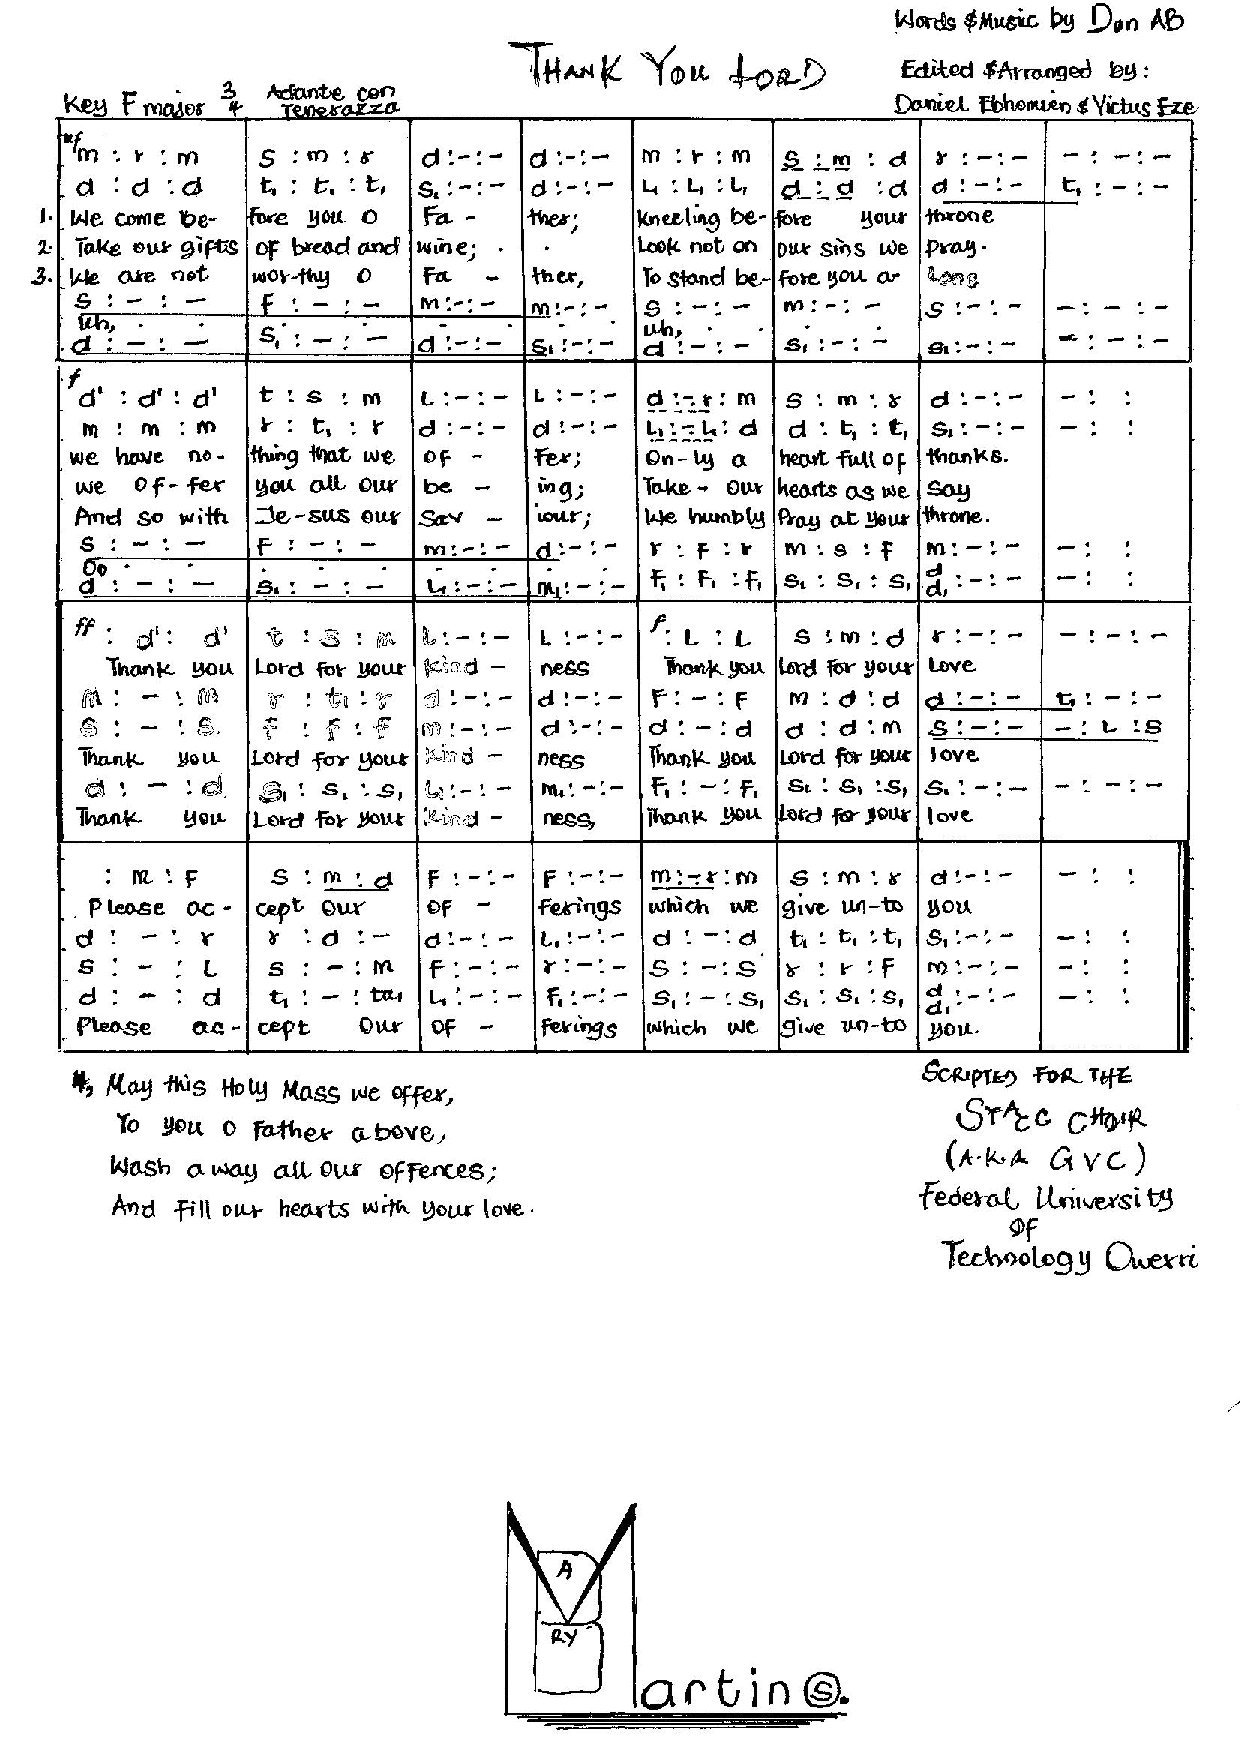 Words & Music by Don AB
THANK YOU LORD
Edited & Arranged by:
Key F major 3/4 Adante con Tenerazza
Daniel Ebhomien & Victus Eze
mf
m : r : m | s : m : r | d : - : - | d : - : - | m : r : m | s : m : d | r : - : - | - : - : -
d : d : d | t₁ : t₁ : t₁ | s₁ : - : - | d : - : - | l₁ : l₁ : l₁ | d : d : d | d : - : - | t₁ : - : -
1. We come be- fore you O Fa - ther; kneeling be- fore your throne
2. Take our gifts of bread and wine; . . Look not on our sins we pray.
3. We are not wor-thy O Fa - ther, To stand be- fore you a- long
s : - : - | f : - : - | m : - : - | m : - : - | s : - : - | m : - : - | s : - : - | - : - : -
uh, . . . . uh, . . .
d : - : - | s₁ : - : - | d : - : - | s₁ : - : - | d : - : - | s₁ : - : - | s₁ : - : - | - : - : -
f
d' : d' : d' | t : s : m | l : - : - | l : - : - | d : - r : m | s : m : r | d : - : - | - : :
m : m : m | r : t₁ : r | d : - : - | d : - : - | l₁ : - l₁ : d | d : t₁ : t₁ | s₁ : - : - | - : :
we have no- thing that we of - fer; On-ly a heart full of thanks.
we of-fer you all our be - ing; Take - our hearts as we say
And so with Je-sus our Sav - iour; We humbly Pray at your throne.
s : - : - | f : - : - | m : - : - | d : - : - | r : f : r | m : s : f | m : - : - | - : :
Oo . . . . . .
d : - : - | s₁ : - : - | l₁ : - : - | m₁ : - : - | f₁ : f₁ : f₁ | s₁ : s₁ : s₁ | d d₁ : - : - | - : :
ff : d' : d' | t : s : m | l : - : - | l : - : - | f : l : l | s : m : d | r : - : - | - : - : -
Thank you Lord for your kind - ness Thank you Lord for your love
m : - : m | r : t₁ : r | d : - : - | d : - : - | f : - : f | m : d : d | d : - : - | t₁ : - : -
s : - : s | f : f : f | m : - : - | d : - : - | d : - : d | d : d : m | s : - : - | - : l : s
Thank you Lord for your kind - ness Thank you Lord for your love
d : - : d | s₁ : s₁ : s₁ | l₁ : - : - | m₁ : - : - | f₁ : - : f₁ | s₁ : s₁ : s₁ | s₁ : - : - | - : - : -
Thank you Lord for your kind - ness, Thank you Lord for your love
: m : f | s : m : d | f : - : - | f : - : - | m : - r : m | s : m : r | d : - : - | - : :
Please ac - cept our of - ferings which we give un-to you
d : - : r | r : d : - | d : - : - | l₁ : - : - | d : - : d | t₁ : t₁ : t₁ | s₁ : - : - | - : :
s : - : l | s : - : m | f : - : - | r : - : - | s : - : s | r : r : f | m : - : - | - : :
d : - : d | t₁ : - : ta₁ | l₁ : - : - | f₁ : - : - | s₁ : - : s₁ | s₁ : s₁ : s₁ | d d₁ : - : - | - : :
Please ac - cept our of - ferings which we give un-to you.
4, May this Holy Mass we offer,
To you O Father above,
Wash away all our offences;
And fill our hearts with your love.
SCRIPTED FOR THE
STACC CHOIR
(A.K.A GVC)
Federal University
OF
Technology Owerri
A
RY
Martins.